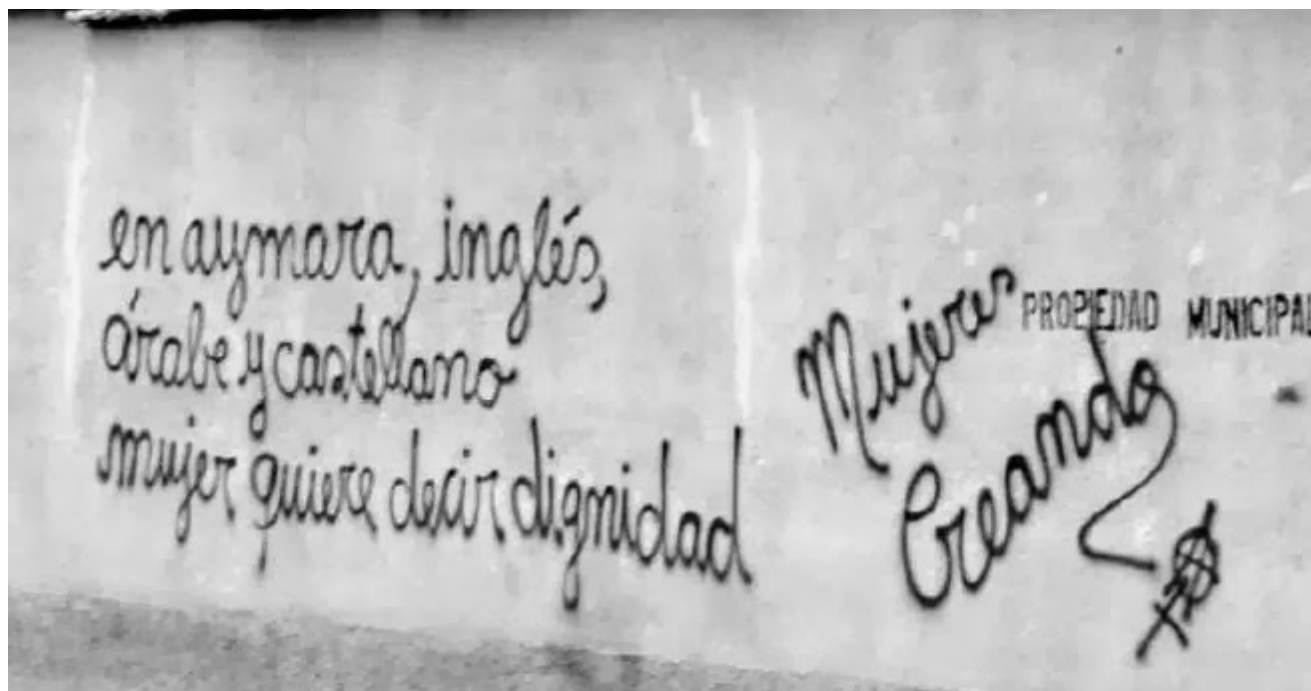 en aymara, inglés,
árabe y castellano
mujer quiere decir dignidad
Mujeres
Creando
PROPIEDAD MUNICIPAL